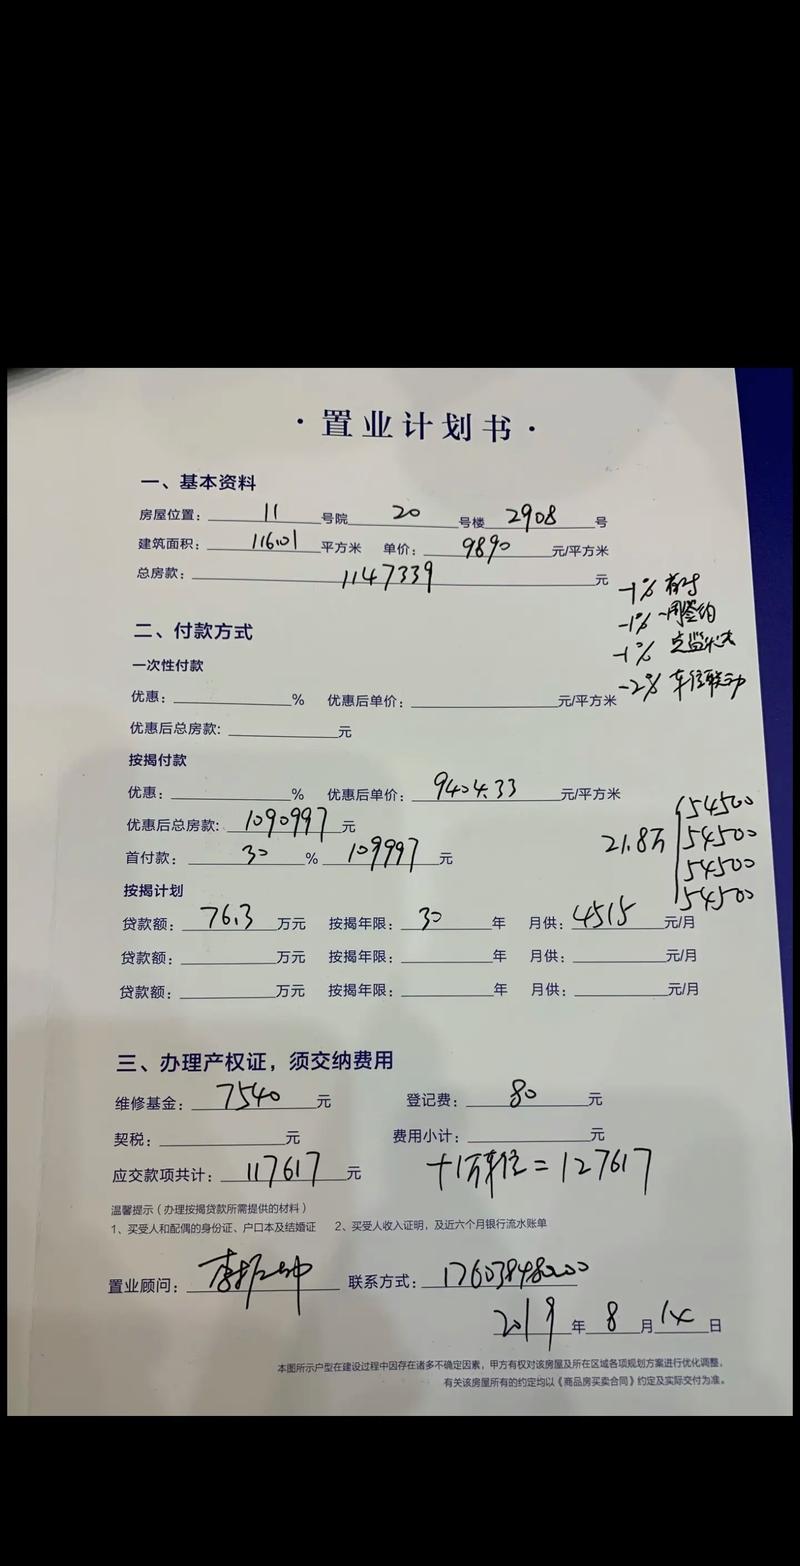 ·置业计划书·
一、基本资料
房屋位置：11号院20号楼2908号
建筑面积：116.01平方米 单价：9890元/平方米
总房款：1147339元
-1%
-1% 一周签约
-1%
-2% 车位联动
二、付款方式
一次性付款
优惠：%　优惠后单价：元/平方米
优惠后总房款：元
按揭付款
优惠：%　优惠后单价：9404.33元/平方米
优惠后总房款：1090997元
首付款：30%109997元
21.8万
54500
54500
54500
54500
按揭计划
贷款额：76.3万元 按揭年限：30年 月供：4515元/月
贷款额：万元 按揭年限：年 月供：元/月
贷款额：万元 按揭年限：年 月供：元/月
三、办理产权证，须交纳费用
维修基金：7540元 登记费：80元
契税：元 费用小计：元
应交款项共计：117617元 +1万车位=127617
温馨提示（办理按揭贷款所需提供的材料）
1、买受人和配偶的身份证、户口本及结婚证 2、买受人收入证明，及近六个月银行流水账单
置业顾问：李振坤 联系方式：17603848200
2019年8月14日
本图所示户型在建设过程中因存在诸多不确定因素，甲方有权对该房屋及所在区域各项规划方案进行优化调整。
有关该房屋所有的约定均以《商品房买卖合同》约定及实际交付为准。